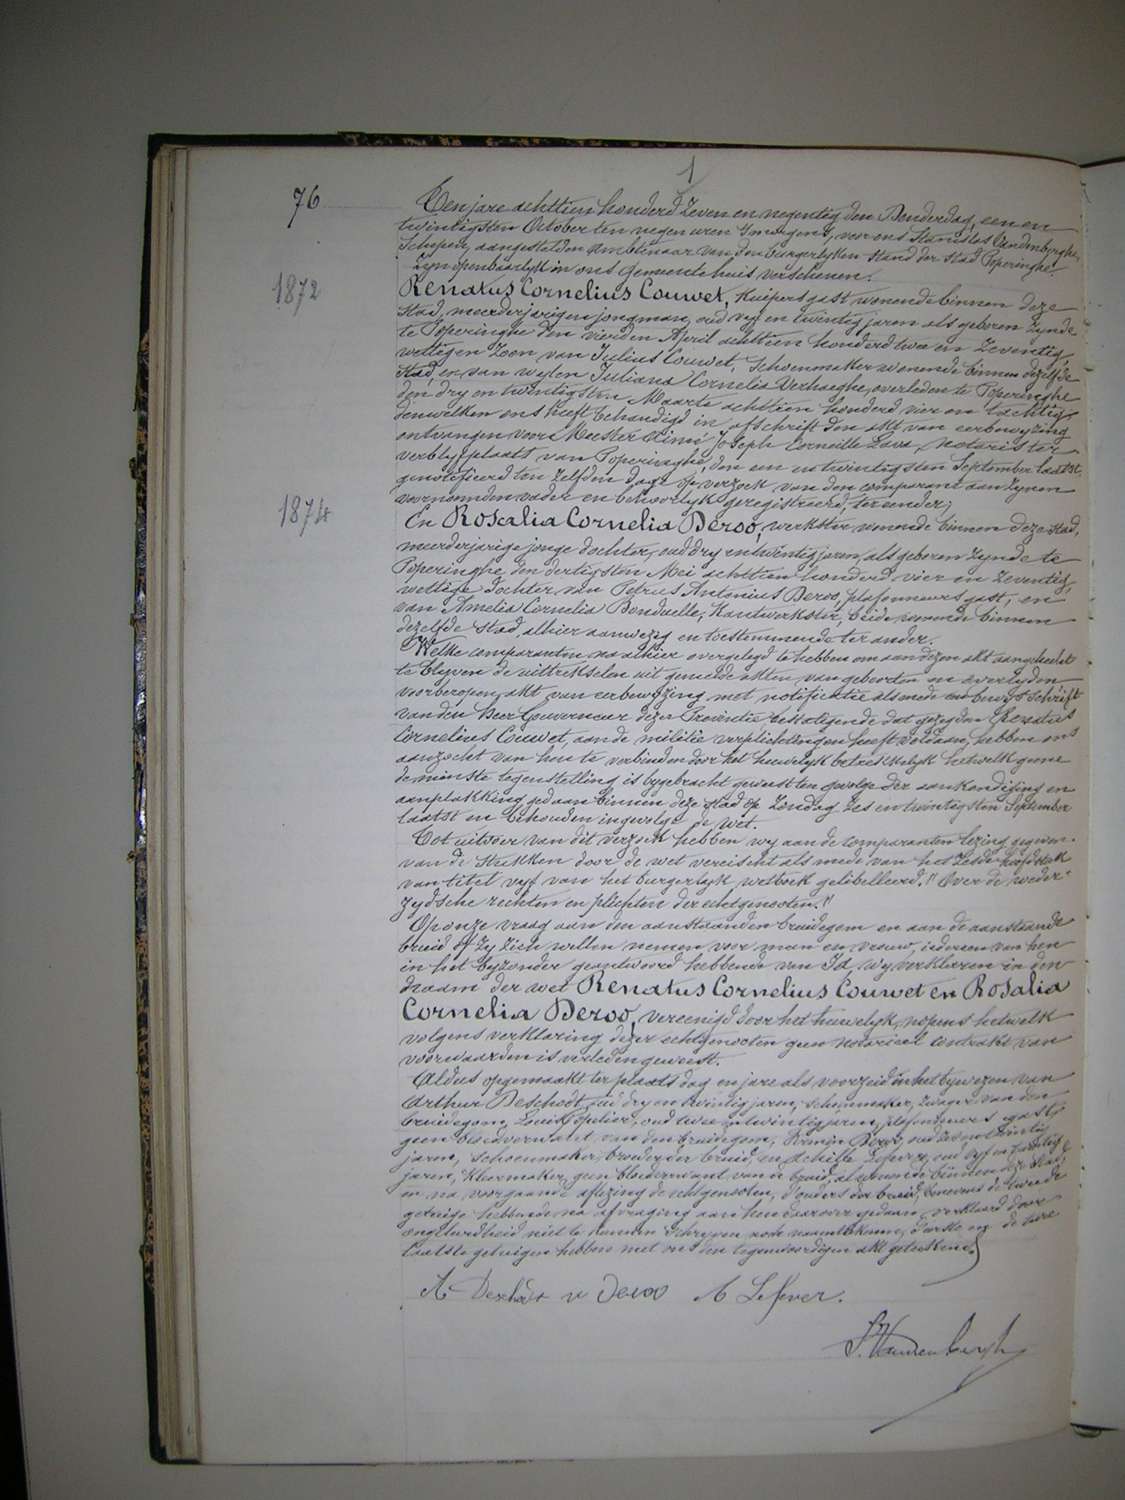 1
76
Ten jare achttien honderd zeven en negentig den Donderdag, een en
twintigsten October ten negen uren 's morgens, voor ons Stanislas Vandenbryghe,
Schepen, aangestelden ambtenaar van den burgerlyken stand der stad Poperinghe
zyn openbaarlyk in ons Gemeente huis verschenen.
1872
Renatus Cornelius Couwet, Kuipersgast wonende binnen deze
stad, meerderjarigen jongman, oud vyf en twintig jaren als geboren zynde
te Poperinghe den vierden April achttien honderd twee en zeventig,
wettigen zoon van Julius Couwet, Schoenmaker wonende binnen dezelfde
stad, en van wylen Juliana Cornelia Verhaeghe, overleden te Poperinghe
den dry en twintigsten Maarte achttien honderd vier en tachtig,
denwelken ons heeft behandigd in afschrift den akt van eerbewyzing
ontvangen voor Meester Rimi Joseph Corneille Lava, notaris ter
verblyfplaats van Poperinghe, den een en twintigsten September laatst
genotifieerd ten zelfden dage op verzoek van den comparant aan zynen
voornoemden vader en behoorlyk geregistreerd, ter eender;
1874
En Rosalia Cornelia Deroo, werkster wonende binnen deze stad,
meerderjarige jonge dochter, oud dry en twintig jaren, als geboren zynde te
Poperinghe den dertigsten Mei achttien honderd vier en zeventig,
wettige dochter van Petrus Antonius Deroo, plafonneursgast, en
van Amelia Cornelia Bonduelle, Kantwerkster, beide wonende binnen
dezelfde stad, alhier aanwezig en toestemmende ter ander.
Welke comparanten na alhier overgelegd te hebben om aan dezen akt aangehecht
te blyven de uittrekselen uit gemelde akten van geboorten en overlyden
voorberoepen, akt van eerbewyzing met notificatie alsmede en bewysschrift
van den Heer Gouverneur dezer Provintie, bestatigende dat gezegden Renatus
Cornelius Couwet, aan de militie verplichtingen heeft voldaan, hebben ons
aanzocht van hen te verbinden door het huwelyk betrekkelyk hetwelk geene
de minste tegenstelling is bygebracht geweest ten gevolge der aankondiging en
aanplakking gedaan binnen deze stad op Zondag zes en twintigsten September
laatst en behouden ingevolge de wet.
Tot uitvoer van dit verzoek hebben wy aan de comparanten lezing gegeven
van de stukken door de wet vereischt als mede van het zesde hoofdstuk
van titel vyf van het burgerlyk wetboek gelibelleerd." Over de weder-
zydsche rechten en plichten der echtgenooten."
Op onze vraag aan den aanstaanden bruidegom en aan de aanstaande
bruid of zy zich willen nemen voor man en vrouw, iedereen van hen
in het byzonder geantwoord hebbende van Ja, wy verklaren in den
naam der wet Renatus Cornelius Couwet en Rosalia
Cornelia Deroo, vereenigd door het huwelyk, nopens hetwelk
volgens verklaring dezer echtgenooten geen notarieel contrakt van
voorwaarden is verleden geweest.
Aldus opgemaakt ter plaats dag en jare als voorzeid in het bywezen van
Arthur Deschodt, oud dry en twintig jaren, schoenmaker, zwager van den
bruidegom, Louis oud twee en twintig jaren, plafonneurs gast
geen bloedverwant van den bruidegom, Romain Deroo, oud zeven twintig
jaren, schoenmaker, broeder der bruid, en Achille Lefever, oud vyf en twintig
jaren, Kleermaker, geen bloedverwant van de bruid, al wonende binnen deze stad,
en na voorgaande aflezing de echtgenooten, d'ouders der bruid, benevens de tweede
getuige hebbende na afvraging aan hen daarover gedaan, verklaard door
ongeleerdheid niet te kunnen schryven noch naamteekenen, d'eerste en de twee
laatste getuigen hebben met ons den tegenwoordigen akt geteekend.
A Deschodt R Deroo A Lefever.
S. Vandenbergh